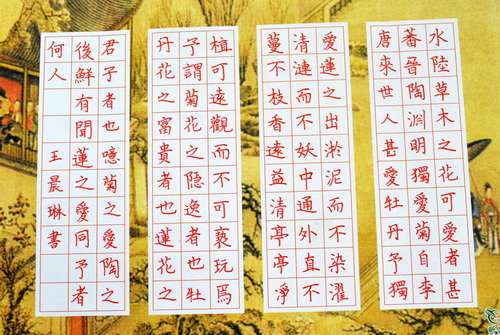 水陸草木之花可愛者甚
蕃晉陶渊明獨愛菊自李
唐來世人甚愛牡丹予獨
愛蓮之出淤泥而不染濯
清漣而不妖中通外直不
蔓不枝香遠益清亭亭淨
植可遠觀而不可褻玩焉
予謂菊花之隐逸者也牡
丹花之富貴者也蓮花之
君子者也噫菊之愛陶之
後鮮有聞蓮之愛同予者
何人 王晨琳書